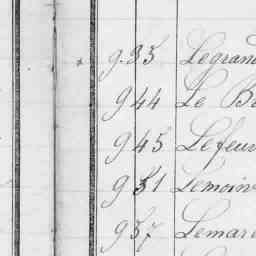 935 Legrand
944 Le Be
945 Lefeuv
951 Lemoin
957 Lemare